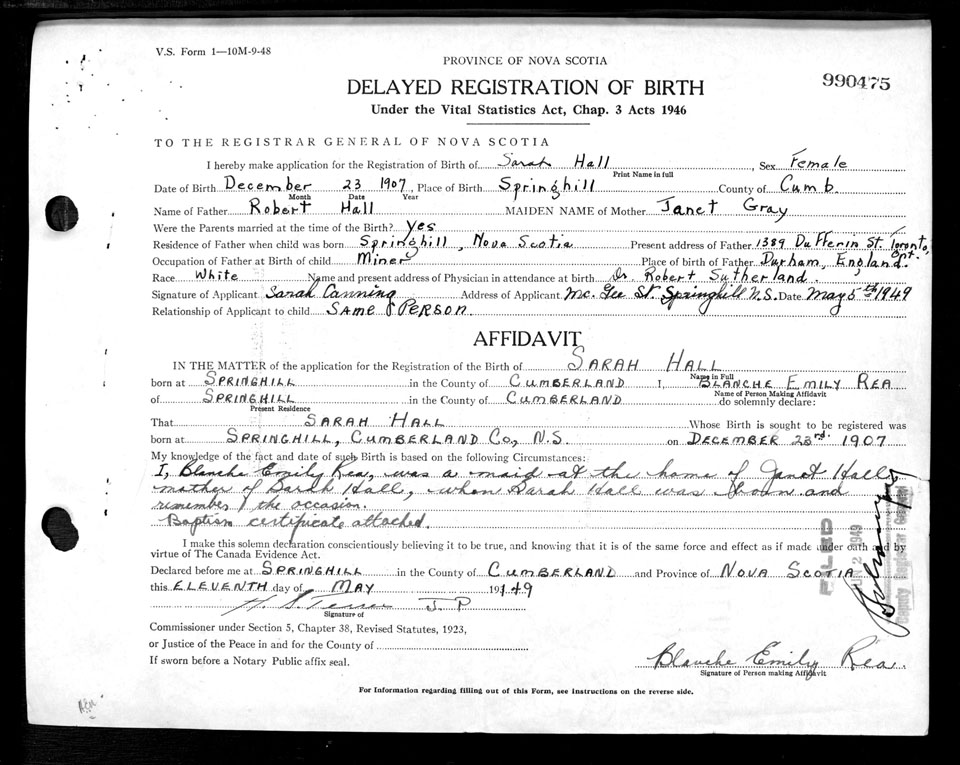 V.S. Form 1—10M-9-48
PROVINCE OF NOVA SCOTIA
990475
DELAYED REGISTRATION OF BIRTH
Under the Vital Statistics Act, Chap. 3 Acts 1946
TO THE REGISTRAR GENERAL OF NOVA SCOTIA
I hereby make application for the Registration of Birth of Sarah Hall, Sex Female
Print Name in full
Date of Birth December 23 1907, Place of Birth Springhill County of Cumb.
Month Date Year
Name of Father Robert Hall MAIDEN NAME of Mother Janet Gray
Were the Parents married at the time of the Birth? Yes
Residence of Father when child was born Springhill, Nova Scotia Present address of Father 1389 Dufferin St. Toronto, Ont.
Occupation of Father at Birth of child Miner Place of birth of Father Durham, England.
Race White Name and present address of Physician in attendance at birth Dr. Robert Sutherland.
Signature of Applicant Sarah Canning Address of Applicant Mc. Gee St. Springhill N.S. Date May 5th 1949
Relationship of Applicant to child SAME PERSON.
AFFIDAVIT
IN THE MATTER of the application for the Registration of the Birth of SARAH HALL
Name in Full
born at SPRINGHILL in the County of CUMBERLAND I, BLANCHE EMILY REA
Name of Person Making Affidavit
of SPRINGHILL in the County of CUMBERLAND do solemnly declare:
Present Residence
That SARAH HALL Whose Birth is sought to be registered was
born at SPRINGHILL, CUMBERLAND CO., N.S. on DECEMBER 23rd. 1907
My knowledge of the fact and date of such Birth is based on the following Circumstances:
I, Blanche Emily Rea, was a maid at the home of Janet Hall
mother of Sarah Hall, when Sarah Hall was born and
remember the occasion.
Baptism certificate attached.
I make this solemn declaration conscientiously believing it to be true, and knowing that it is of the same force and effect as if made under oath and by
virtue of The Canada Evidence Act.
Declared before me at SPRINGHILL in the County of CUMBERLAND and Province of NOVA SCOTIA
this ELEVENTH day of MAY 1949
J. P
Signature of
Commissioner under Section 5, Chapter 38, Revised Statutes, 1923,
or Justice of the Peace in and for the County of
If sworn before a Notary Public affix seal.
Blanche Emily Rea.
Signature of Person making Affidavit
For Information regarding filling out of this Form, see instructions on the reverse side.
FILED
1949
Deputy Registrar General